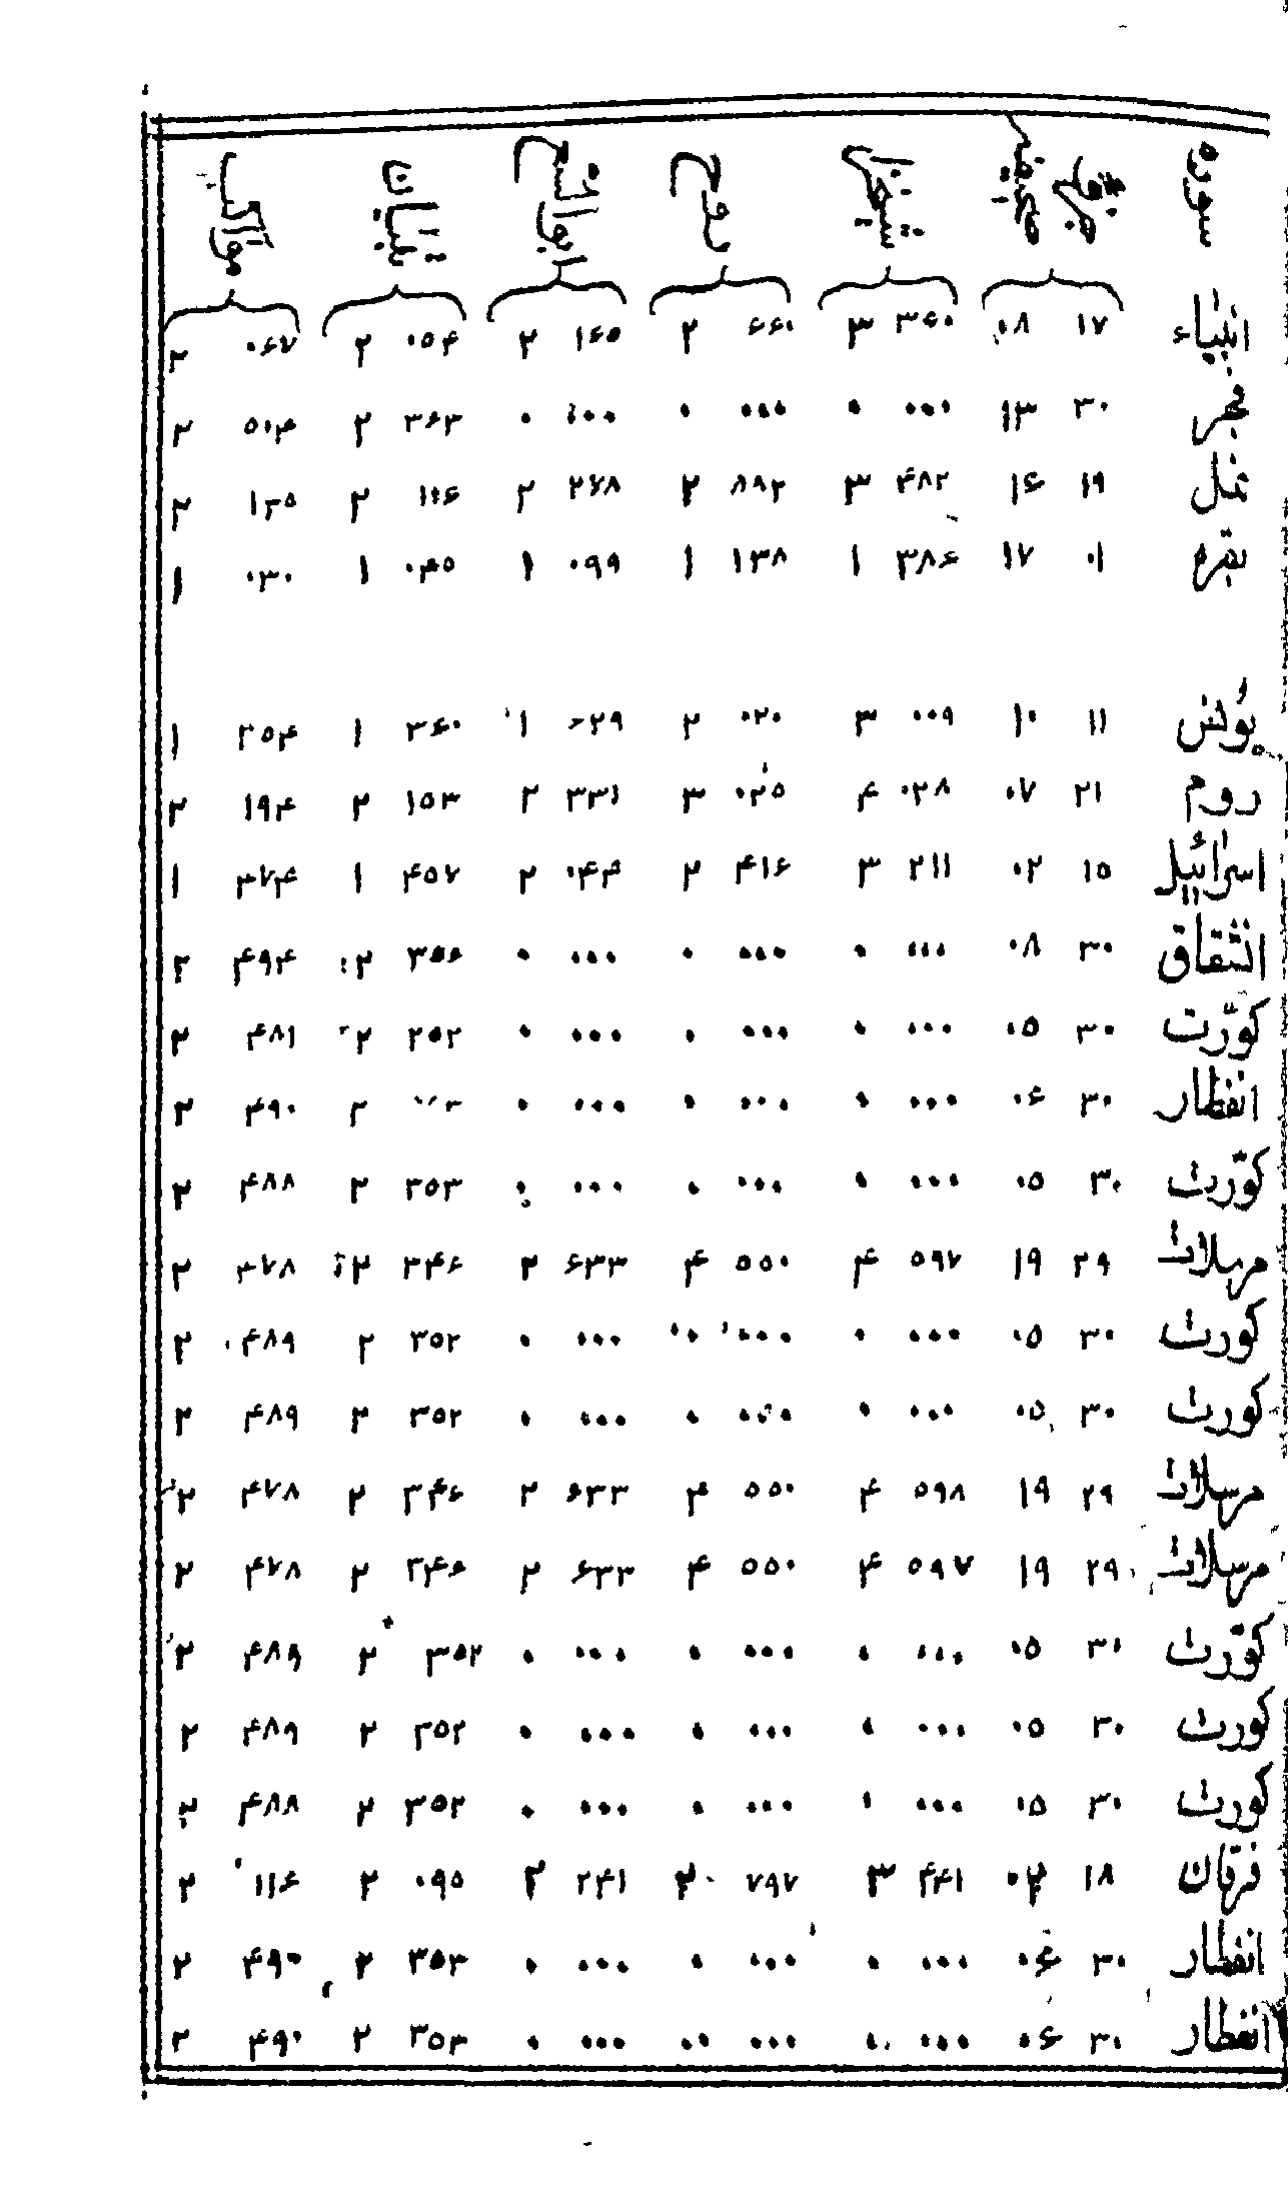 سوره جزو صحیفه شیخ روح ابوالفتوح تبیان
انبیاء ۱۷ ۰۸ ۳۶۰ ۳ ۶۶۰ ۲ ۱۶۵ ۲ ۰۵۴ ۲ ۰۶۷ ۲
فجر ۳۰ ۱۳ ۰۰۰ ۰ ۰۰۰ ۰ ۰۰۰ ۰ ۳۶۳ ۲ ۵۰۴ ۲
نمل ۱۹ ۱۶ ۴۸۲ ۳ ۸۹۲ ۲ ۲۷۸ ۲ ۱۱۶ ۲ ۱۳۵ ۲
بقره ۰۱ ۱۷ ۳۸۶ ۱ ۱۳۸ ۱ ۰۹۹ ۱ ۰۴۵ ۱ ۰۳۰ ۱
یونس ۱۱ ۱۰ ۰۰۹ ۳ ۰۲۰ ۲ ۶۲۹ ۱ ۳۶۰ ۱ ۳۵۴ ۱
روم ۲۱ ۰۷ ۰۲۸ ۴ ۰۲۵ ۳ ۳۳۱ ۲ ۱۵۳ ۲ ۱۹۴ ۲
اسرائیل ۱۵ ۰۲ ۲۱۱ ۳ ۴۱۶ ۲ ۰۴۴ ۲ ۴۵۷ ۱ ۴۷۴ ۱
انشقاق ۳۰ ۰۸ ۰۰۰ ۰ ۰۰۰ ۰ ۰۰۰ ۰ ۳۵۶ ۲ ۴۹۴ ۲
کوّرت ۳۰ ۰۵ ۰۰۰ ۰ ۰۰۰ ۰ ۰۰۰ ۰ ۲۵۲ ۲ ۴۸۱ ۲
انفطار ۳۰ ۰۶ ۰۰۰ ۰ ۰۰۰ ۰ ۰۰۰ ۰ ۲ ۴۹۰ ۲
کوّرت ۳۰ ۰۵ ۰۰۰ ۰ ۰۰۰ ۰ ۰۰۰ ۰ ۳۵۳ ۲ ۴۸۸ ۲
مرسلات ۲۹ ۱۹ ۵۹۷ ۴ ۵۵۰ ۴ ۶۳۳ ۲ ۳۴۶ ۲ ۴۷۸ ۲
کورت ۳۰ ۰۵ ۰۰۰ ۰ ۰۰۰ ۰ ۰۰۰ ۰ ۳۵۲ ۲ ۴۸۹ ۲
کورت ۳۰ ۰۵ ۰۰۰ ۰ ۰۰۰ ۰ ۰۰۰ ۰ ۳۵۲ ۲ ۴۸۹ ۲
مرسلات ۲۹ ۱۹ ۵۹۸ ۴ ۵۵۰ ۴ ۶۳۳ ۲ ۳۴۶ ۲ ۴۷۸ ۲
مرسلات ۲۹ ۱۹ ۵۹۷ ۴ ۵۵۰ ۴ ۶۳۳ ۲ ۳۴۶ ۲ ۴۷۸ ۲
کوّرت ۳۰ ۰۵ ۰۰۰ ۰ ۰۰۰ ۰ ۰۰۰ ۰ ۳۵۲ ۲ ۴۸۹ ۲
کورت ۳۰ ۰۵ ۰۰۰ ۰ ۰۰۰ ۰ ۰۰۰ ۰ ۳۵۲ ۲ ۴۸۹ ۲
کورت ۳۰ ۰۵ ۰۰۰ ۰ ۰۰۰ ۰ ۰۰۰ ۰ ۳۵۲ ۲ ۴۸۸ ۲
فرقان ۱۸ ۰۴ ۴۴۱ ۳ ۷۹۷ ۲ ۲۴۱ ۲ ۰۹۵ ۲ ۱۱۶ ۲
انفطار ۳۰ ۰۶ ۰۰۰ ۰ ۰۰۰ ۰ ۰۰۰ ۰ ۳۵۳ ۲ ۴۹۰ ۲
انفطار ۳۰ ۰۶ ۰۰۰ ۰ ۰۰۰ ۰ ۰۰۰ ۰ ۳۵۳ ۲ ۴۹۰ ۲